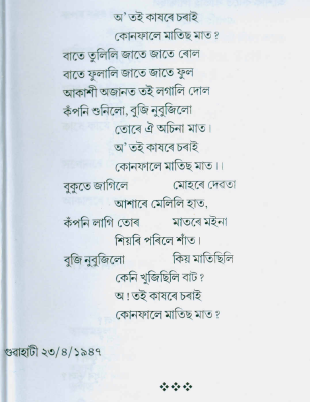 অ’ তই কাষৰে চৰাই
কোনফালে মাতিছ মাত ?
বাতে তুলিলি জাতে জাতে ৰোল
বাতে ফুলালি জাতে জাতে ফুল
আকাশী অজানত তই লগালি দোল
কঁপনি শুনিলো, বুজি নুবুজিলো
তোৰে ঐ অচিনা মাত।
অ’ তই কাষৰে চৰাই
কোনফালে মাতিছ মাত।।
বুকুতে জাগিলে মোহৰে দেৱতা
আশাৰে মেলিলি হাত,
কঁপনি লাগি তোৰ মাতৰে মইনা
শিয়ৰি পৰিলে শাঁত।
বুজি নুবুজিলো কিয় মাতিছিলি
কেনি খুজিছিলি বাট ?
অ ! তই কাষৰে চৰাই
কোনফালে মাতিছ মাত ?
গুৱাহাটী ২৩/৪/১৯৪৭